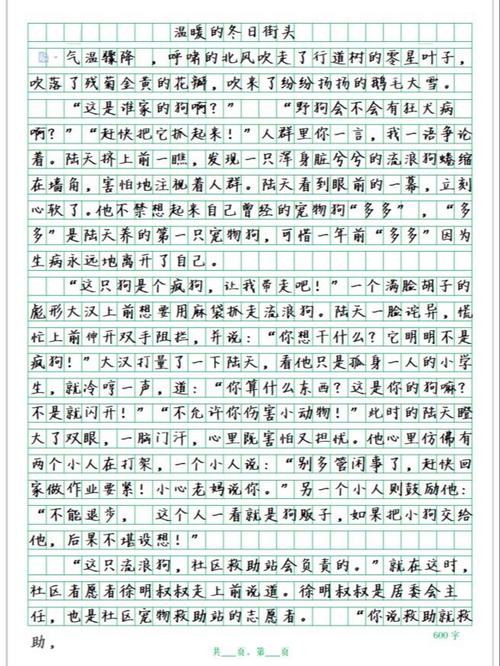 温暖的冬日街头
气温骤降，呼啸的北风吹走了行道树的零星叶子，
吹落了残菊金黄的花瓣，吹来了纷纷扬扬的鹅毛大雪。
“这是谁家的狗啊？”“野狗会不会有狂犬病
啊？”“赶快把它抓起来！”人群里你一言，我一语争论
着。陆天挤上前一瞧，发现一只浑身脏兮兮的流浪狗蜷缩
在墙角，害怕地注视着人群。陆天看到眼前的一幕，立刻
心软了。他不禁想起来自己曾经的宠物狗“多多”，“多
多”是陆天养的第一只宠物狗，可惜一年前“多多”因为
生病永远地离开了自己。
“这只狗是个疯狗，让我带走吧！”一个满脸胡子的
彪形大汉上前想要用麻袋抓走流浪狗。陆天一脸诧异，慌
忙上前伸开双手阻拦，并说：“你想干什么？它明明不是
疯狗！”大汉打量了一下陆天，看他只是孤身一人的小学
生，就冷哼一声，道：“你算什么东西？这是你的狗嘛？
不是就闪开！”“不允许你伤害小动物！”此时的陆天瞪
大了双眼，一脑门汗，心里既害怕又担忧。他心里仿佛有
两个小人在打架，一个小人说：“别多管闲事了，赶快回
家做作业要紧！小心老妈说你。”另一个小人则鼓励他：
“不能退步，这个人一看就是狗贩子，如果把小狗交给
他，后果不堪设想！”
“这只流浪狗，社区救助站会负责的。”就在这时，
社区志愿者徐明叔叔走上前说道。徐明叔叔是居委会主
任，也是社区宠物救助站的志愿者。“你说救助就救
助，
600字
共___页，第___页